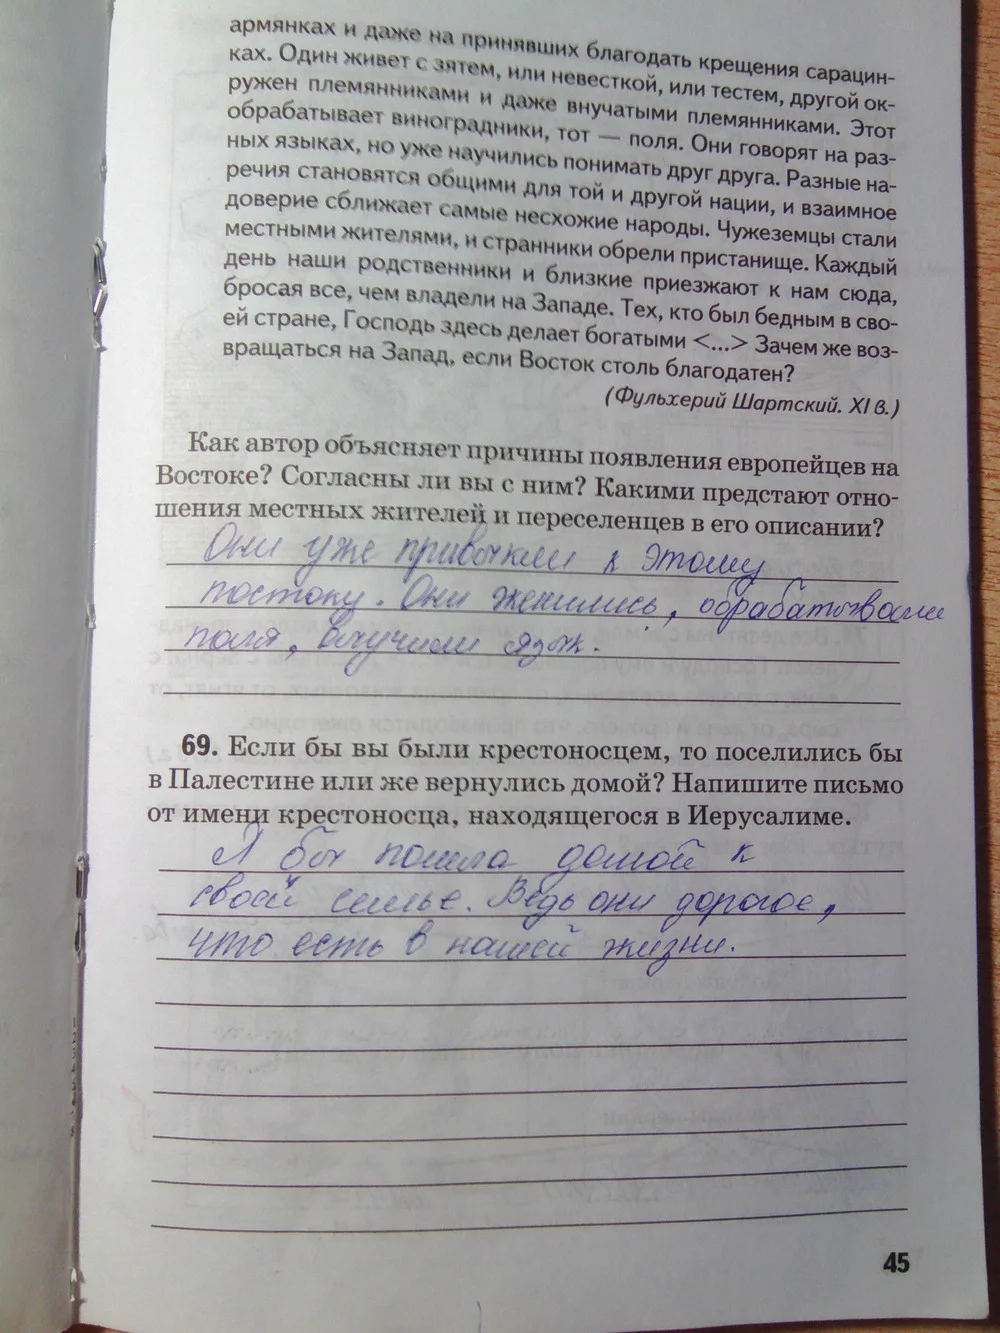 армянках и даже на принявших благодать крещения сарацин-
ках. Один живет с зятем, или невесткой, или тестем, другой ок-
ружен племянниками и даже внучатыми племянниками. Этот
обрабатывает виноградники, тот — поля. Они говорят на раз-
ных языках, но уже научились понимать друг друга. Разные на-
речия становятся общими для той и другой нации, и взаимное
доверие сближает самые несхожие народы. Чужеземцы стали
местными жителями, и странники обрели пристанище. Каждый
день наши родственники и близкие приезжают к нам сюда,
бросая все, чем владели на Западе. Тех, кто был бедным в сво-
ей стране, Господь здесь делает богатыми <...> Зачем же воз-
вращаться на Запад, если Восток столь благодатен?
(Фульхерий Шартский. XI в.)
Как автор объясняет причины появления европейцев на
Востоке? Согласны ли вы с ним? Какими предстают отно-
шения местных жителей и переселенцев в его описании?
Они уже привыкли к этому
постоку. Они женились, обрабатывали
поля, выучили язык.
69. Если бы вы были крестоносцем, то поселились бы
в Палестине или же вернулись домой? Напишите письмо
от имени крестоносца, находящегося в Иерусалиме.
Я бы пошла домой к
своей семье. Ведь они дорогое,
что есть в нашей жизни.
45